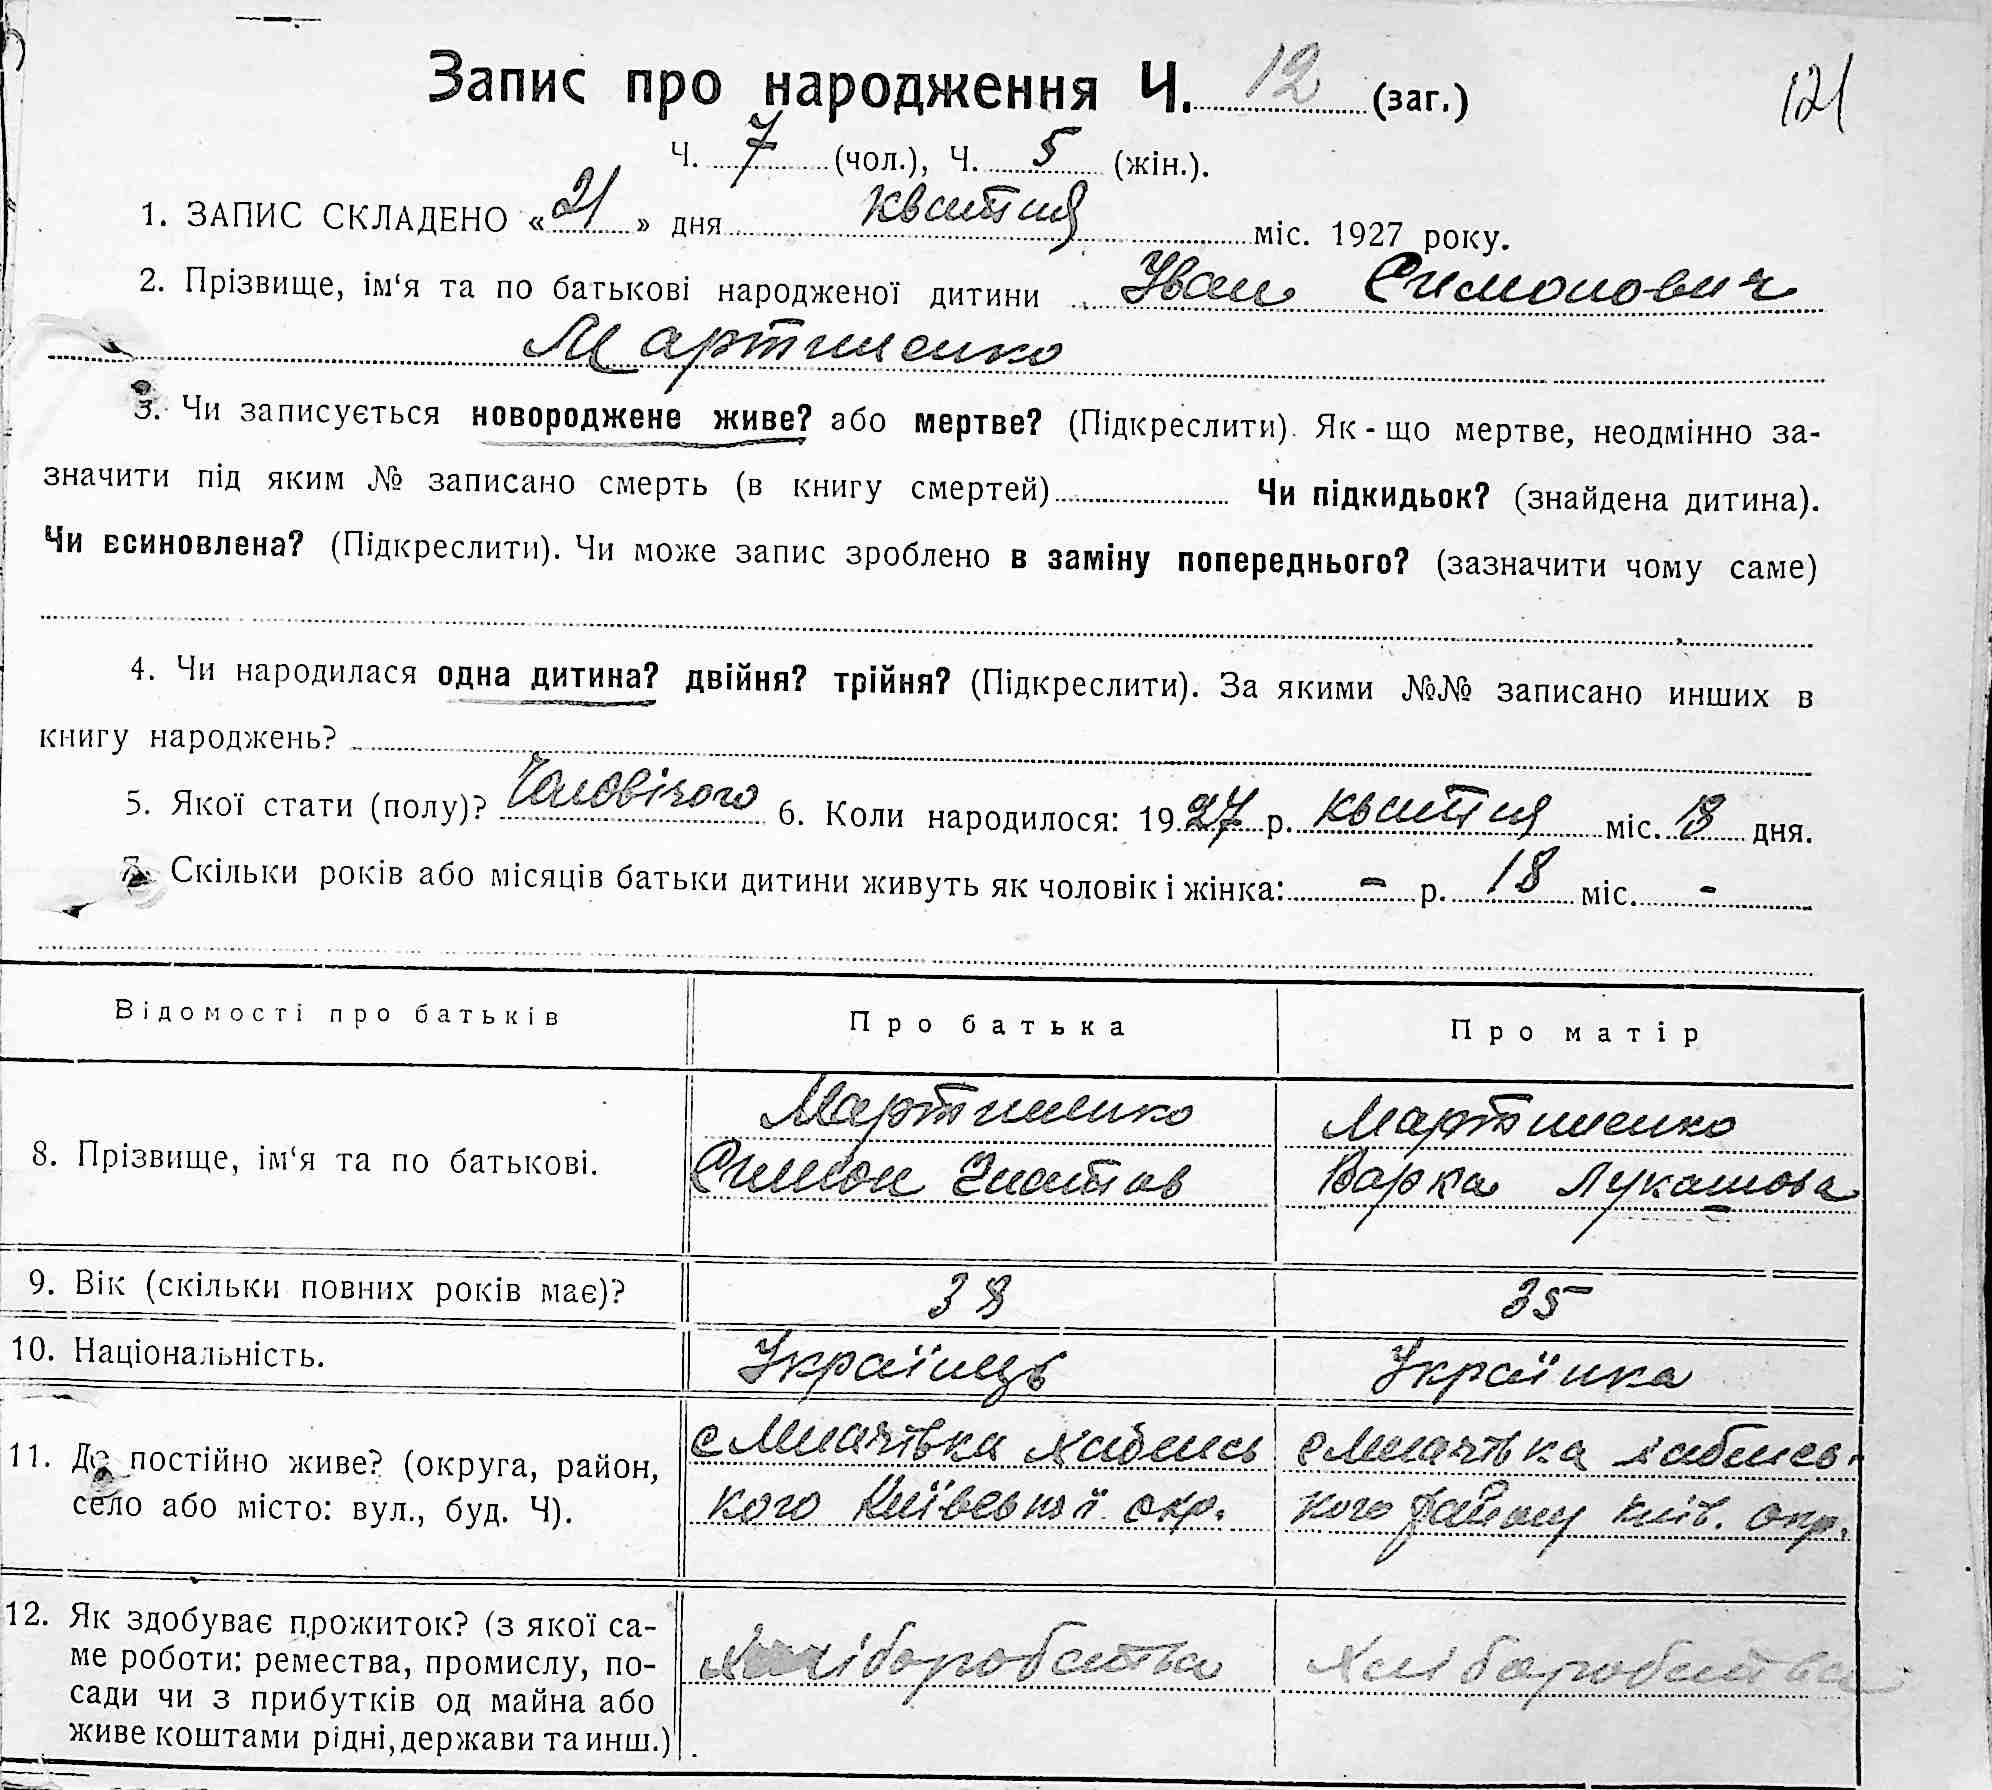 Запис про народження Ч. 12 (заг.)
121
Ч. 7 (чол.), Ч. 5 (жін.).
1. ЗАПИС СКЛАДЕНО «21» дня квітня міс. 1927 року.
2. Прізвище, ім‘я та по батькові народженої дитини Іван Симонович
Мартиненко
3. Чи записується новороджене живе? або мертве? (Підкреслити). Як-що мертве, неодмінно за-
значити під яким № записано смерть (в книгу смертей) Чи підкидьок? (знайдена дитина).
Чи всиновлена? (Підкреслити). Чи може запис зроблено в заміну попереднього? (зазначити чому саме)
4. Чи народилася одна дитина? двійня? трійня? (Підкреслити). За якими №№ записано инших в
книгу народжень?
5. Якої стати (полу)? Чоловічого 6. Коли народилося: 1927 р. квітня міс. 18 дня.
7. Скільки років або місяців батьки дитини живуть як чоловік і жінка: - р. 18 міс. -
Відомості про батьків Про батька Про матір
8. Прізвище, ім‘я та по батькові.
Мартиненко
Симон Гнатів
Мартиненко
Варка Лукашова
9. Вік (скільки повних років має)? 38 35
10. Національність. Українець Українка
11. Де постійно живе? (округа, район,
село або місто: вул., буд. Ч).
с Мигачівка Хабенсь
кого Київської окр.
с Мигачівка Хабенсь-
кого району Київ. окр.
12. Як здобуває прожиток? (з якої са-
ме роботи: ремества, промислу, по-
сади чи з прибутків од майна або
живе коштами рідні, держави та инш.)
хліборобства
хліборобства